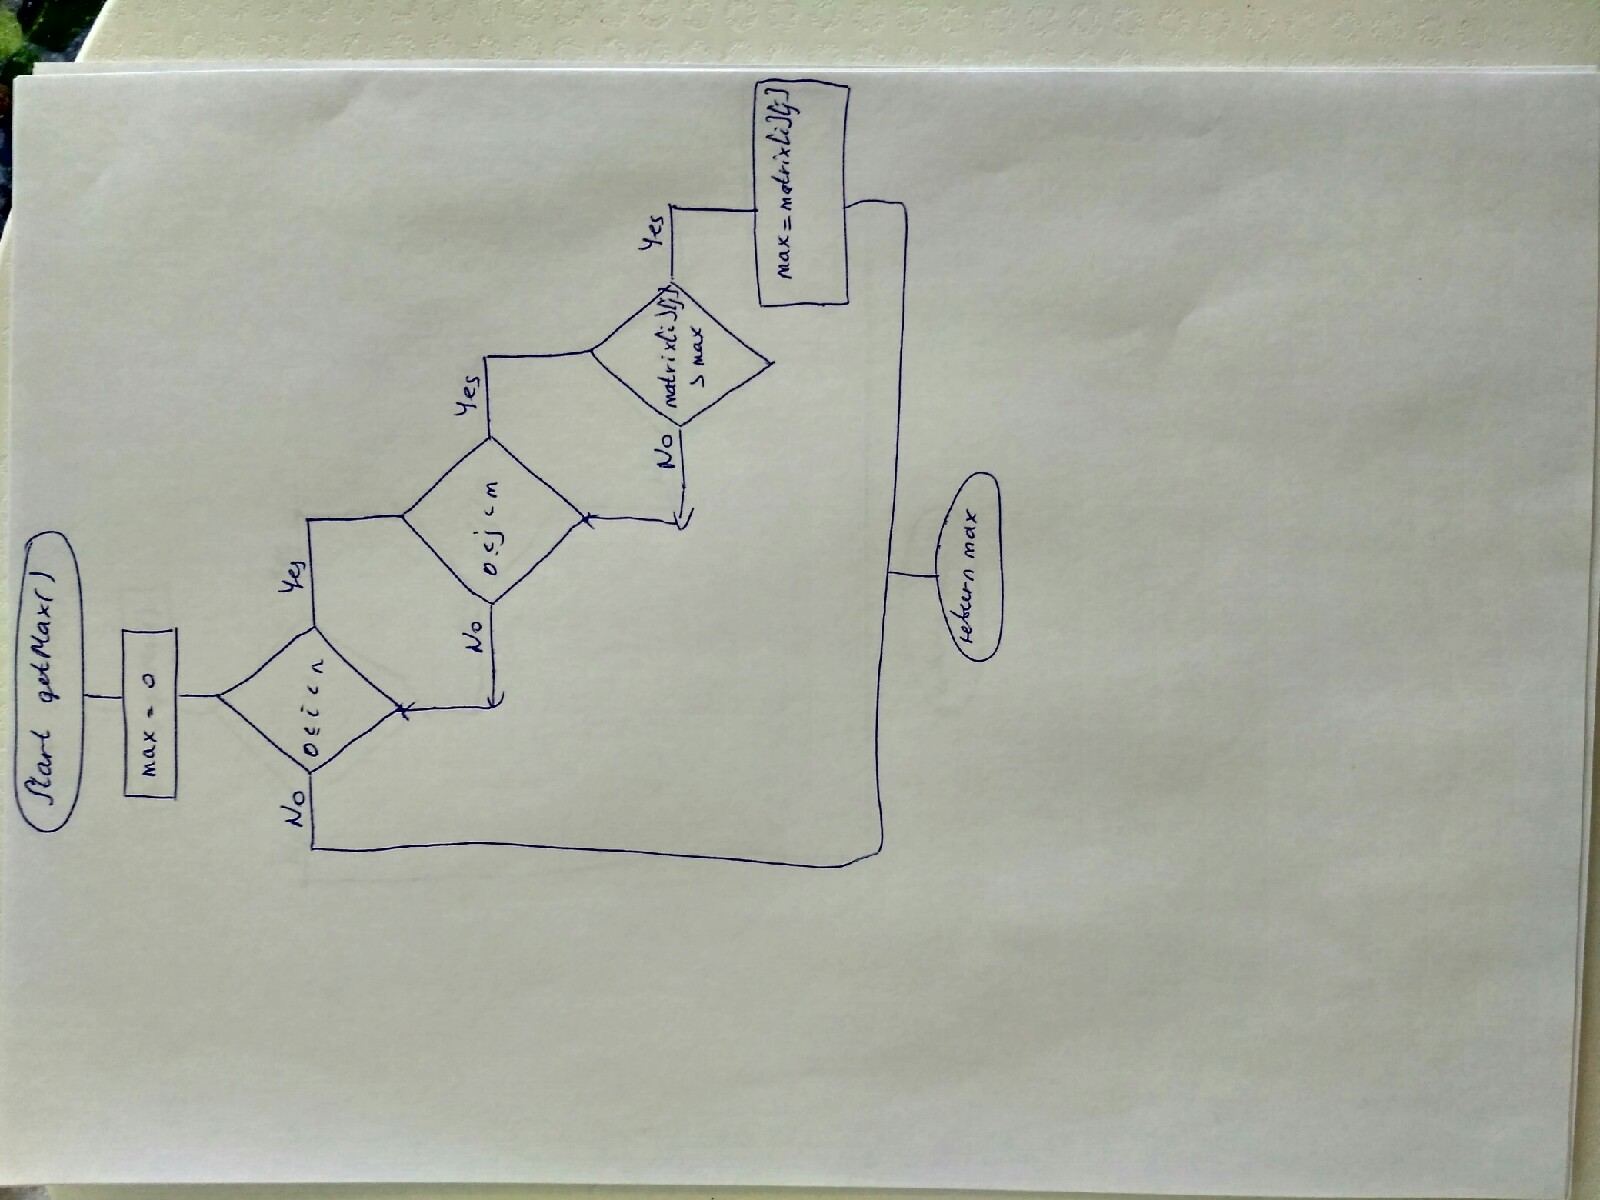 Start getMax()
max = 0
0 ≤ i < n
Yes
No
0 ≤ j < m
Yes
No
matrix[i][j]
> max
Yes
No
max = matrix[i][j]
return max